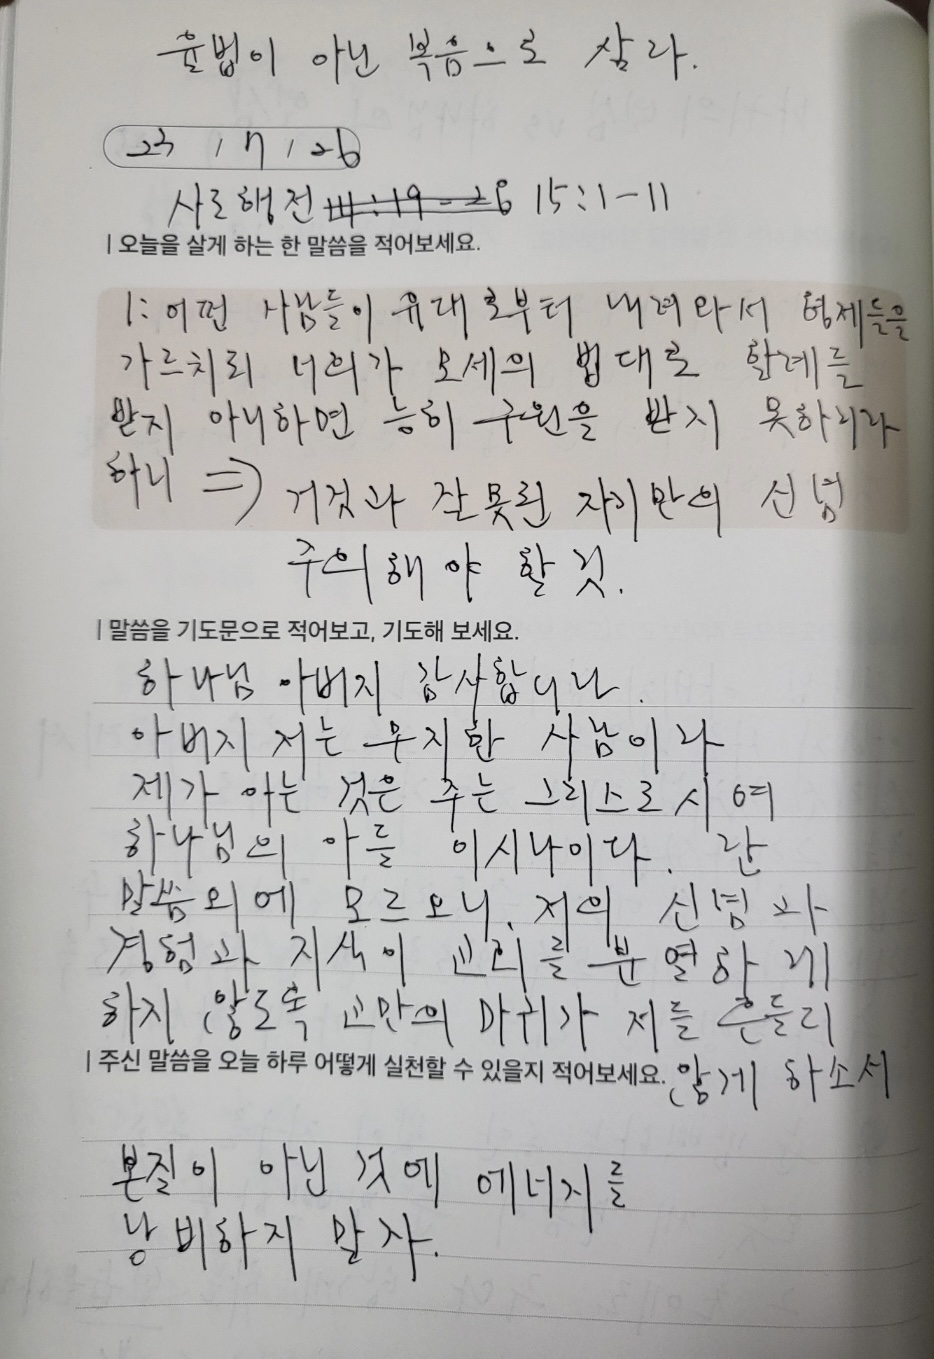 율법이 아닌 복음으로 살라.
23 / 7 / 26
사도행전 15:1-11
| 오늘을 살게 하는 한 말씀을 적어보세요.
1: 어떤 사람들이 유대로부터 내려와서 형제들을
가르치되 너희가 모세의 법대로 할례를
받지 아니하면 능히 구원을 받지 못하리라
하니 ⇒ 거짓과 잘못된 자기만의 신념
주의해야 할 것.
| 말씀을 기도문으로 적어보고, 기도해 보세요.
하나님 아버지 감사합니다.
아버지 저는 무지한 사람이라
제가 아는 것은 주는 그리스도시여
하나님의 아들 이시나이다. 란
말씀 외에 모르오니. 저의 신념과
경험과 지식이 교회를 분열하게
하지 않도록 교만의 마귀가 저를 흔들리
| 주신 말씀을 오늘 하루 어떻게 실천할 수 있을지 적어보세요. 않게 하소서
본질이 아닌 것에 에너지를
낭비하지 말자.